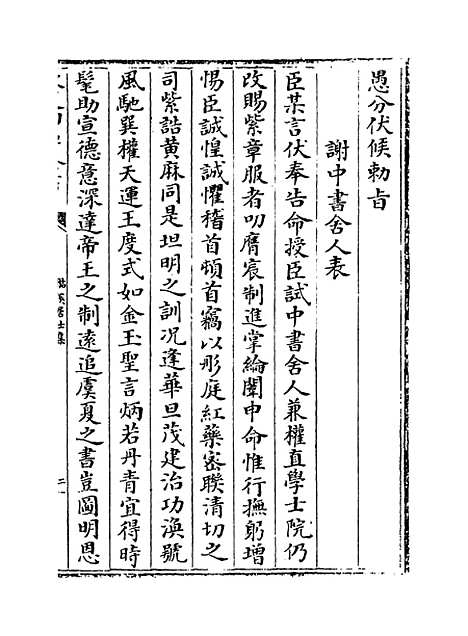 愚分伏候勅旨
謝中書舍人表
臣某言伏奉告命授臣試中書舍人兼權直學士院仍
改賜紫章服者叨膺宸制進掌綸闈申命惟行撫躬增
惕臣誠惶誠懼稽首頓首竊以彤庭紅藥密聯清切之
司紫誥黃麻同是坦明之訓况逢華旦茂建治功渙號
風馳巽權天運王度式如金玉聖言炳若丹青宜得時
髦助宣德意深達帝王之制遠追虞夏之書豈圖明恩